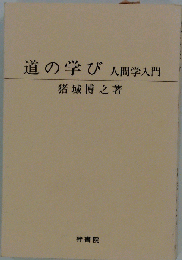 道の学び 人間学入門
猪城博之著
梓書院